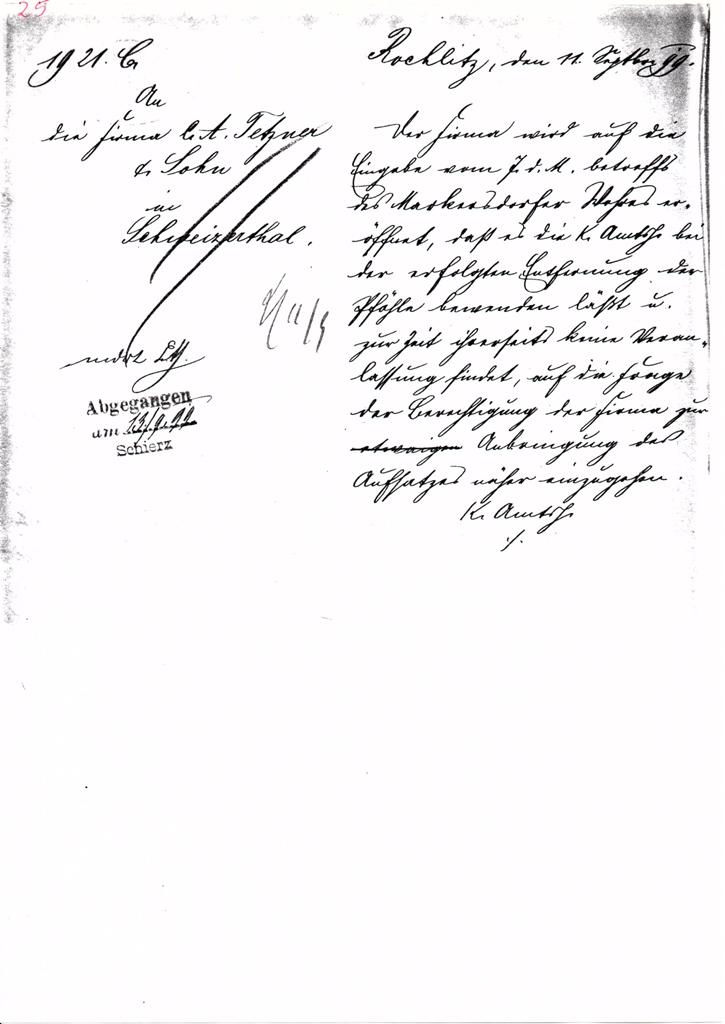 25
1921. G
An
die Firma C. A. Tetzner
& Sohn
in
Schweizerthal.
mdt.
Abgegangen
am 13/9.99
Schierz
Rochlitz, den 11. Septber 99.
Der Firma wird auf die
Eingabe vom 7. d. M. betreffs
des Markersdorfer Wehres er-
öffnet, daß es die K. Amtsh. bei
der erfolgten Entfernung der
Pfähle bewenden läßt u.
zur Zeit ihrerseits keine Veran-
lassung findet, auf die Frage
der Berechtigung der Firma zur
etwaigen Anbringung des
Aufsatzes näher einzugehen.
K. Amtsh.